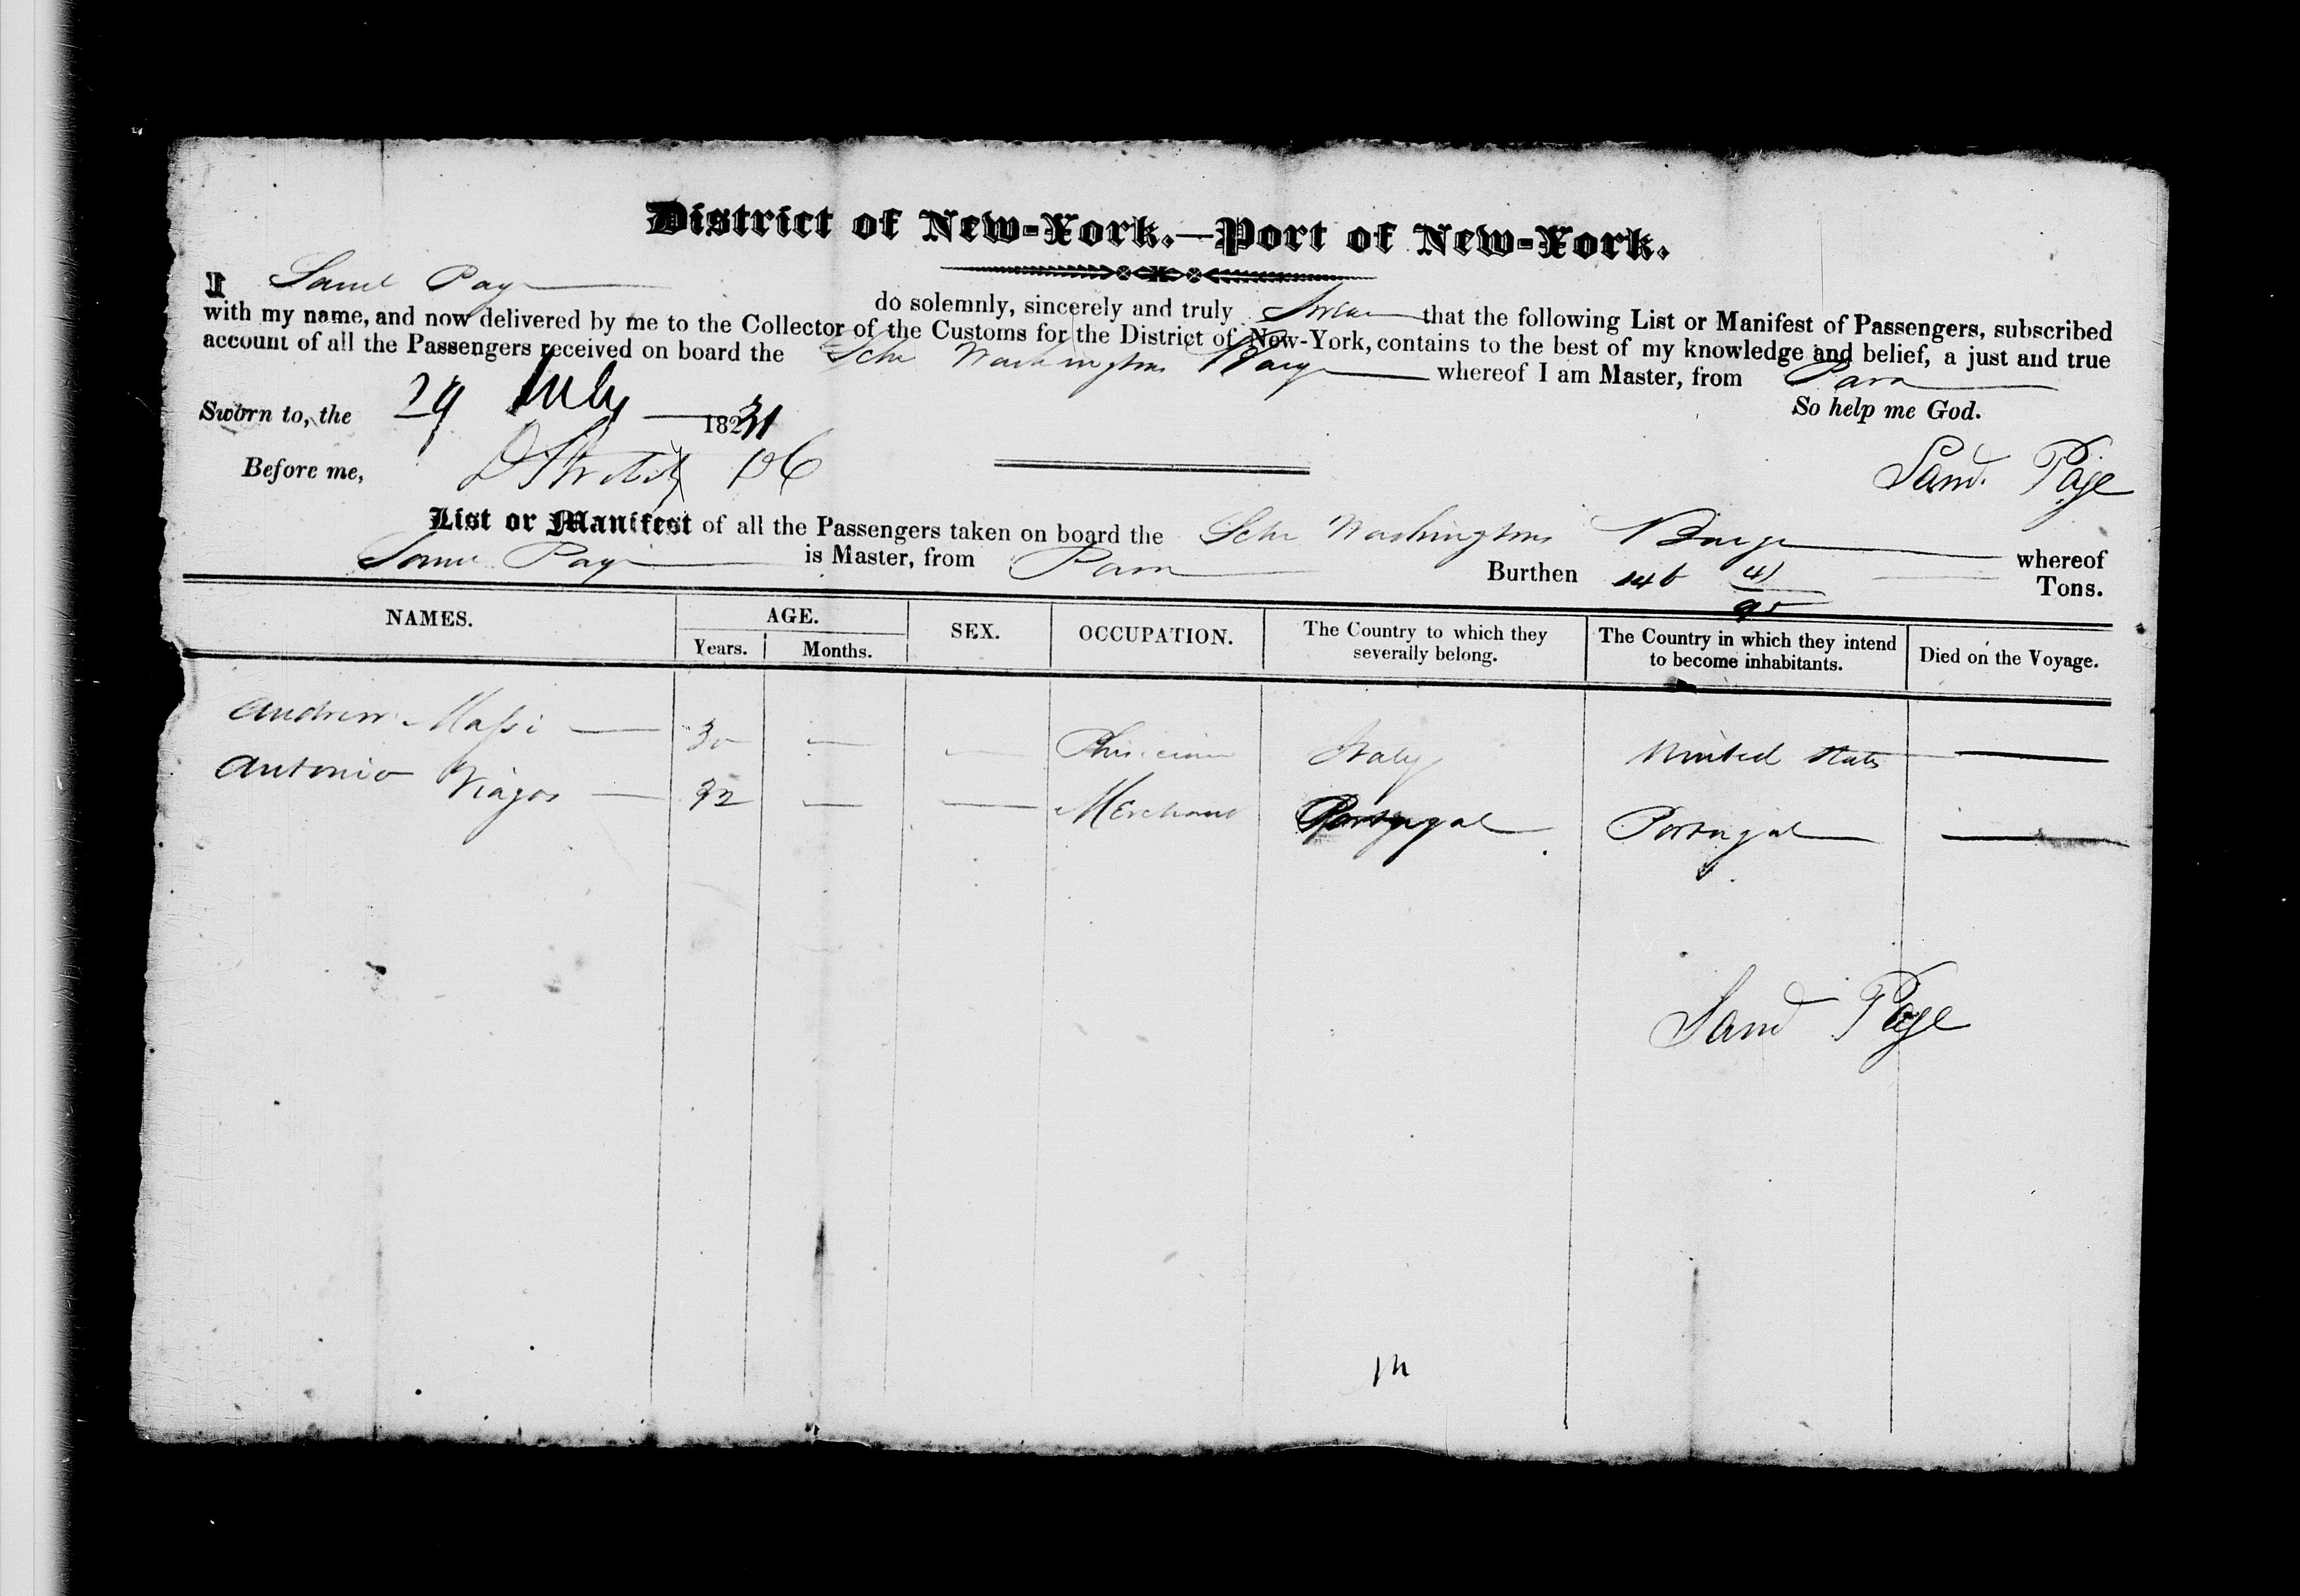 District of New-York.—Port of New-York.
I Saml Page do solemnly, sincerely and truly Swear that the following List or Manifest of Passengers, subscribed
with my name, and now delivered by me to the Collector of the Customs for the District of New-York, contains to the best of my knowledge and belief, a just and true
account of all the Passengers received on board the Schr Washington Barge whereof I am Master, from Para
So help me God.
Sworn to, the 29 July 1831
Before me,
Saml. Page
List or Manifest of all the Passengers taken on board the Schr Washington Barge whereof
Saml Page is Master, from Para Burthen 146 41/95 Tons.
NAMES. AGE. SEX. OCCUPATION. The Country to which they severally belong. The Country in which they intend to become inhabitants. Died on the Voyage.
Years. Months.
Andrew Massi — 30 — — Phisician Italy United States —
Antonio Viagos — 32 — — Merchant Portugal Portugal —
Saml Page